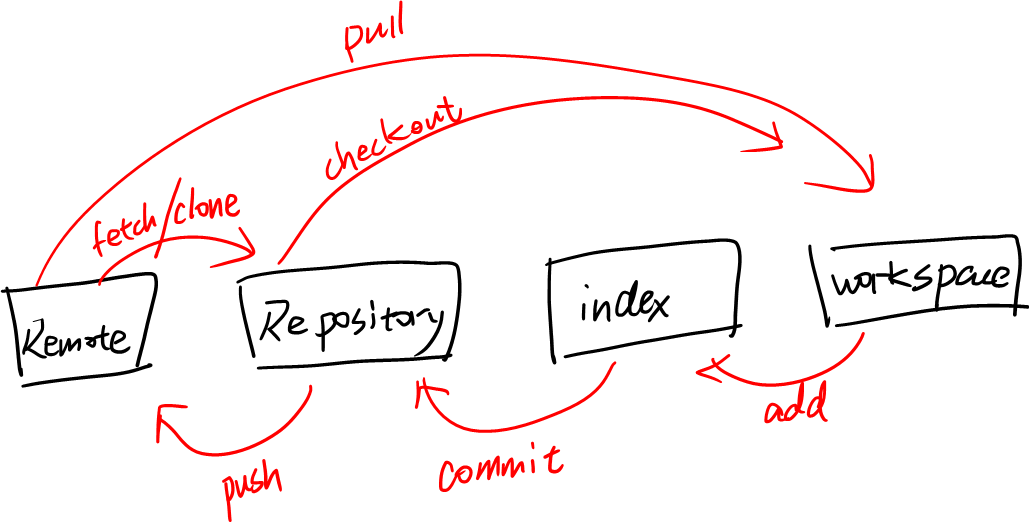 pull
checkout
fetch/clone
Remote
Repository
index
workspace
add
commit
push